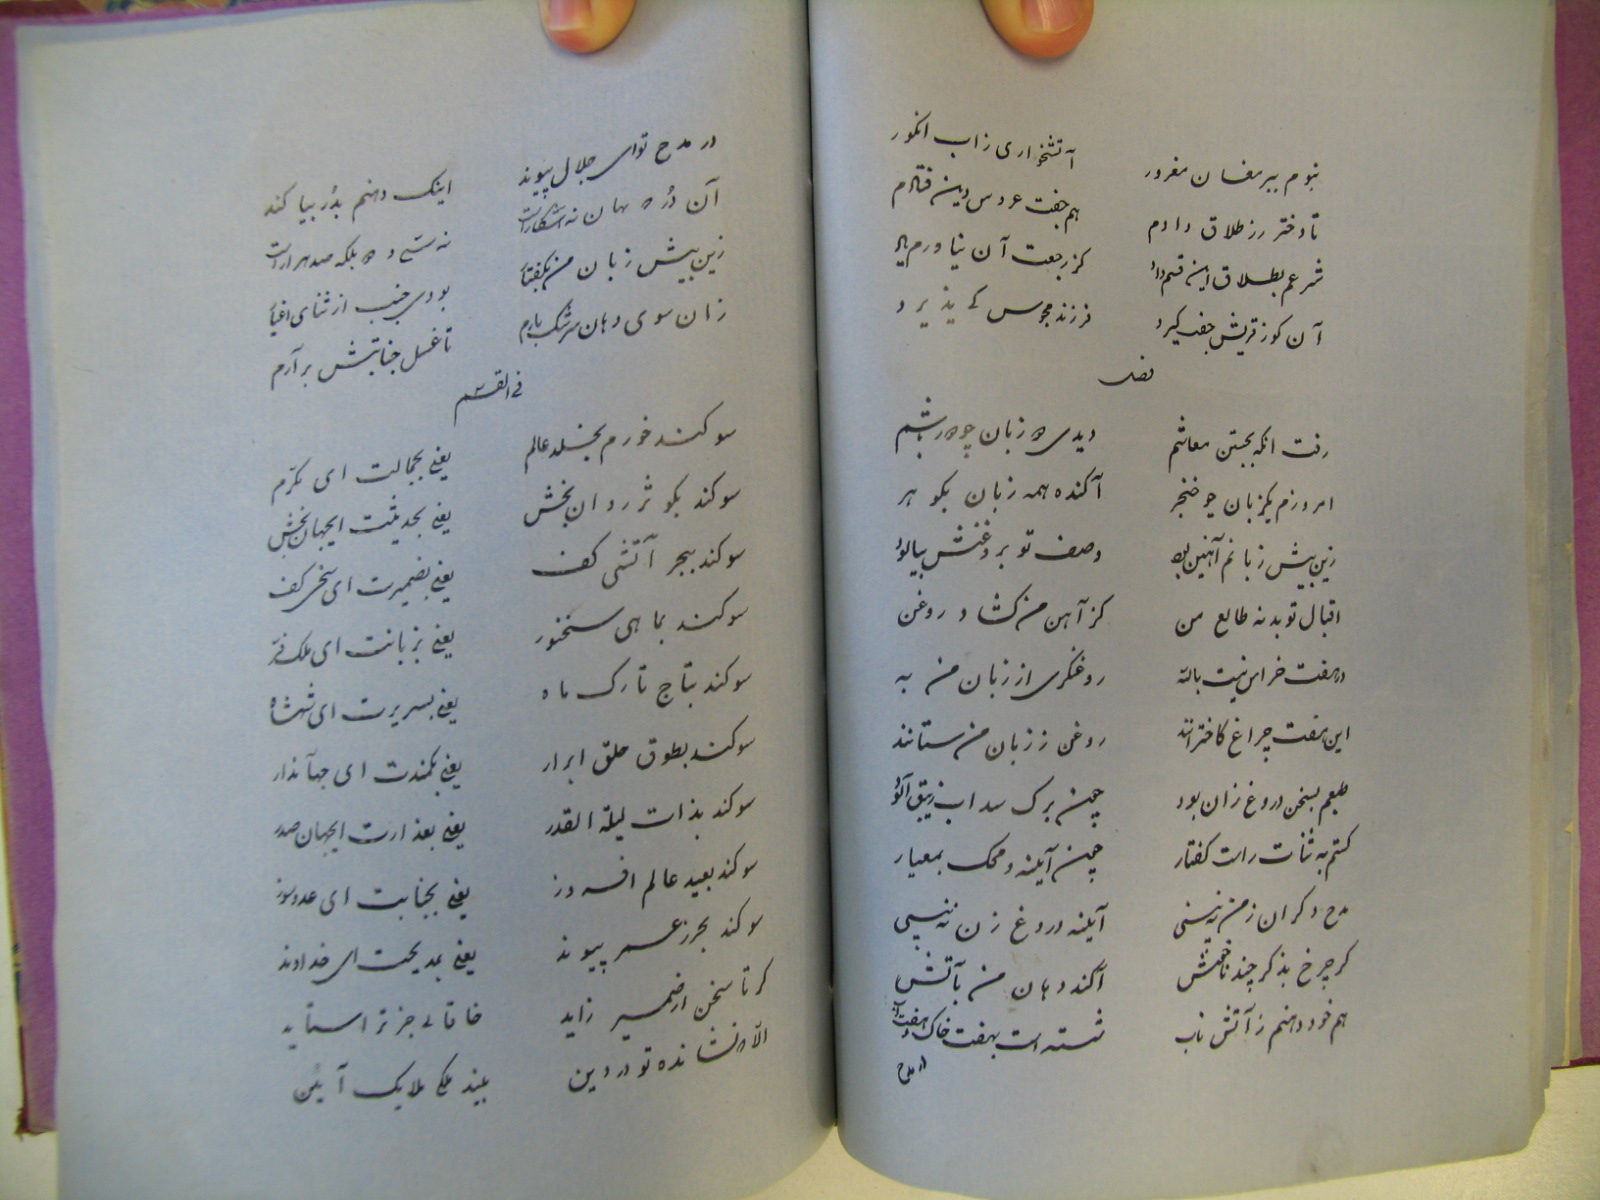 نبوم ببر مغان مغرور آتشخواری ز آب انکور
تا دختر رز طلاق دادم هم جفت عروس دین فتادم
شرعم بطلاق این قسم داد کز رجعت آن نیاورم یاد
آن کوز قریش جفت کیرد فرزند مجوس کے پذیرد
فصل
رفت انکه بجستن معاشم دیدی ده زبان چو باشم
امروزم یکزبان چو خنجر آکنده همه زبان بکوهر
زین پیش زبانم آهنین بود وصف تو بروغنش بیالود
اقبال تو بد نه طالع من کز آهن من کشاد روغن
در هفت خراس نیست بالله روغنکری از زبان من به
این هفت چراغ کاخترانند روغن ز زبان من ستانند
طبعم بسخن دروغ زان بود چون برک سداب زیبق آلود
کشتم به ثنات راست کفتار چون آینه و محک بمعیار
مدح دکران ز من نه بینی آینه دروغ زن نه بینی
کر چرخ بذکر چند ناخوش آکند دهان من بآتش
هم خود دهنم ز آتش ناب شسته است بهفت خاک و هفت آب
در مدح
در مدح تو ای جلال پیوند اینک دهنم بدُر بیاکند
آن دُر دهان نه آشکاراست نه سی و ده بلکه صد هزاراست
زین پیش زبان من بکفتار بودی جنب از ثنای اغیار
زان سوی دهان سرشک بارم تا غسل جنابتش برآرم
فے القسم
سوکند خورم بخلد عالم یعنے بجمالت ای مکرّم
سوکند بکوثر روان بخش یعنے بحدیثت ایجهان بخش
سوکند ببحر آتشی کف یعنے بضمیرت ای سخی کف
سوکند بماهی سخنور یعنے بزبانت ای ملک فرّ
سوکند بتاج تارک ماه یعنے بسریرت ای شهنشاه
سوکند بطوق حلق ابرار یعنے بکمندت ای جهاندار
سوکند بذات لیلة القدر یعنے بعذارت ایجهان صدر
سوکند بعید عالم افروز یعنے بجنابت ای عدوسوز
سوکند بحرز عمر پیوند یعنے بمدیحت ای خداوند
کر تا سخن از ضمیر زاید خاقانے جز ترا ستاید
الا نشانده تو در دین بیند ملکے ملایک آیین